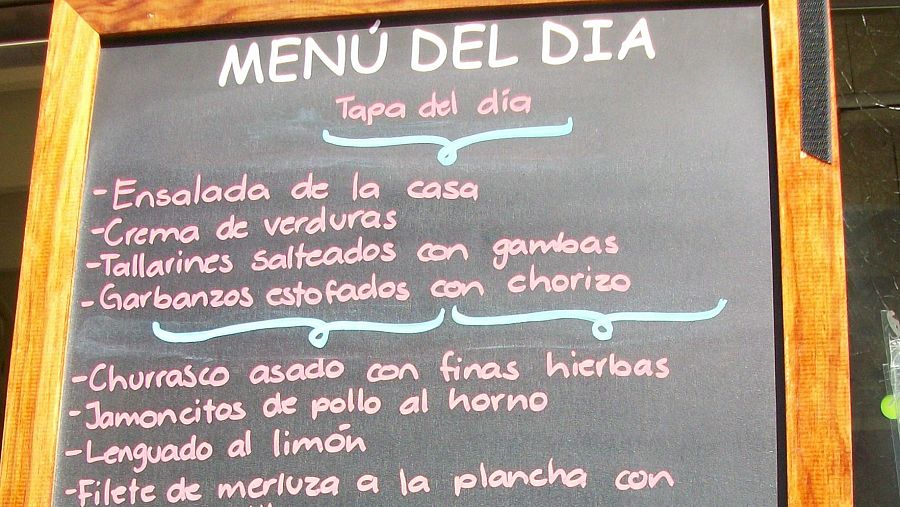 MENÚ DEL DIA
Tapa del día
-Ensalada de la casa
-Crema de verduras
-Tallarines salteados con gambas
-Garbanzos estofados con chorizo
-Churrasco asado con finas hierbas
-Jamoncitos de pollo al horno
-Lenguado al limón
-Filete de merluza a la plancha con